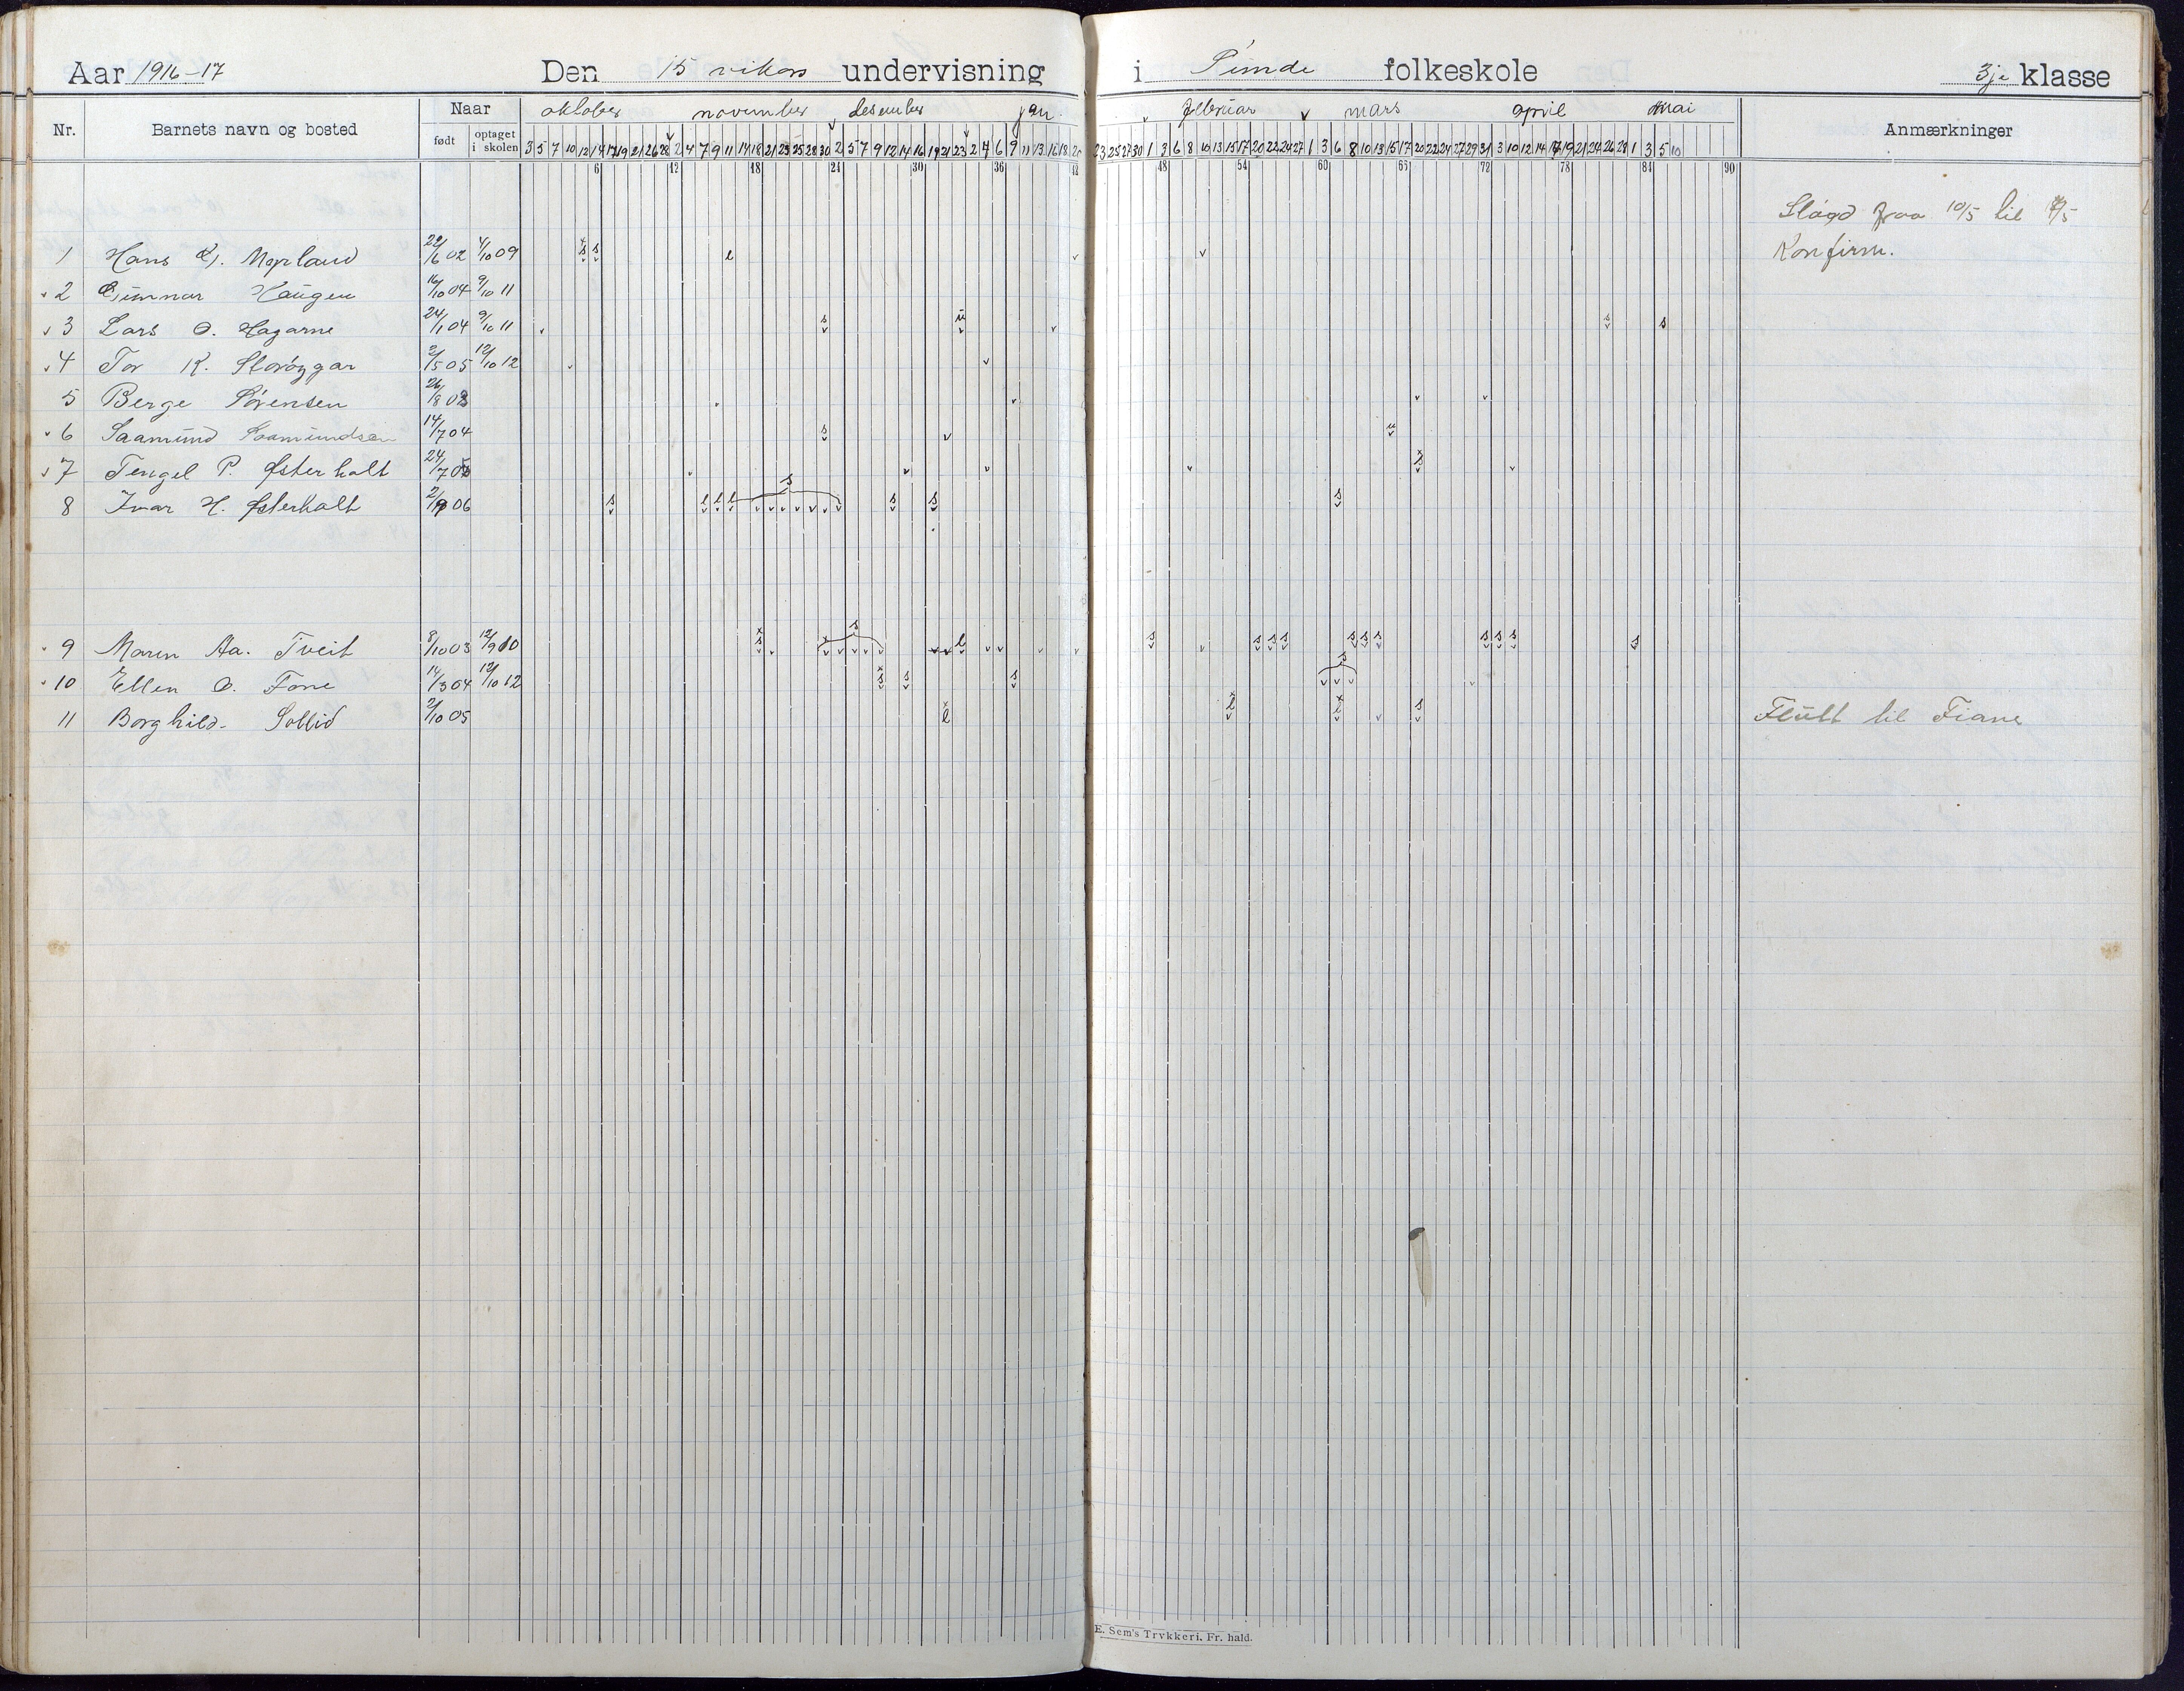 Aar 1916-17 Den 15 vikors undervisning i Sunde folkeskole 3je klasse
Nr. Barnets navn og bosted Naar oktober november desember jan. februar mars april mai Anmærkninger
født optaget i skolen
3 5 7 10 12 14 17 19 21 26 28 2 4 7 9 11 14 18 21 23 25 28 30 2 5 7 9 12 14 16 19 21 23 2 4 6 9 11 13 16 18 20 23 25 27 30 1 3 6 8 10 13 15 17 20 22 24 27 1 3 6 8 10 13 15 17 20 22 24 27 29 31 3 10 12 14 17 19 21 24 26 28 1 3 5 10
6 12 18 24 30 36 42 48 54 60 66 72 78 84 90
Sløgd fraa 10/5 til
1 Hans 22/6 02 4/10 09 Konfirm.
2 Gunnar Haugen 16/10 04 9/10 11
3 Lars O. Hagarne 24/1 04 9/10 11
4 Tor K. 2/5 05 12/10 12
5 Berge Sørensen 26/8
6 Saamund Saamundsen 14/7 04
7 Tengel P. Østerholt 24/7
8 Ivar H. Østerholt 06
9 Maren Aa. Tveit 8/10 03
10 Ellen O. Fone 14/3 04 12/10 12
11 Borghild Sollid 2/10 05 Flutt til Fiane
E. Sem's Trykkeri, Fr.hald.